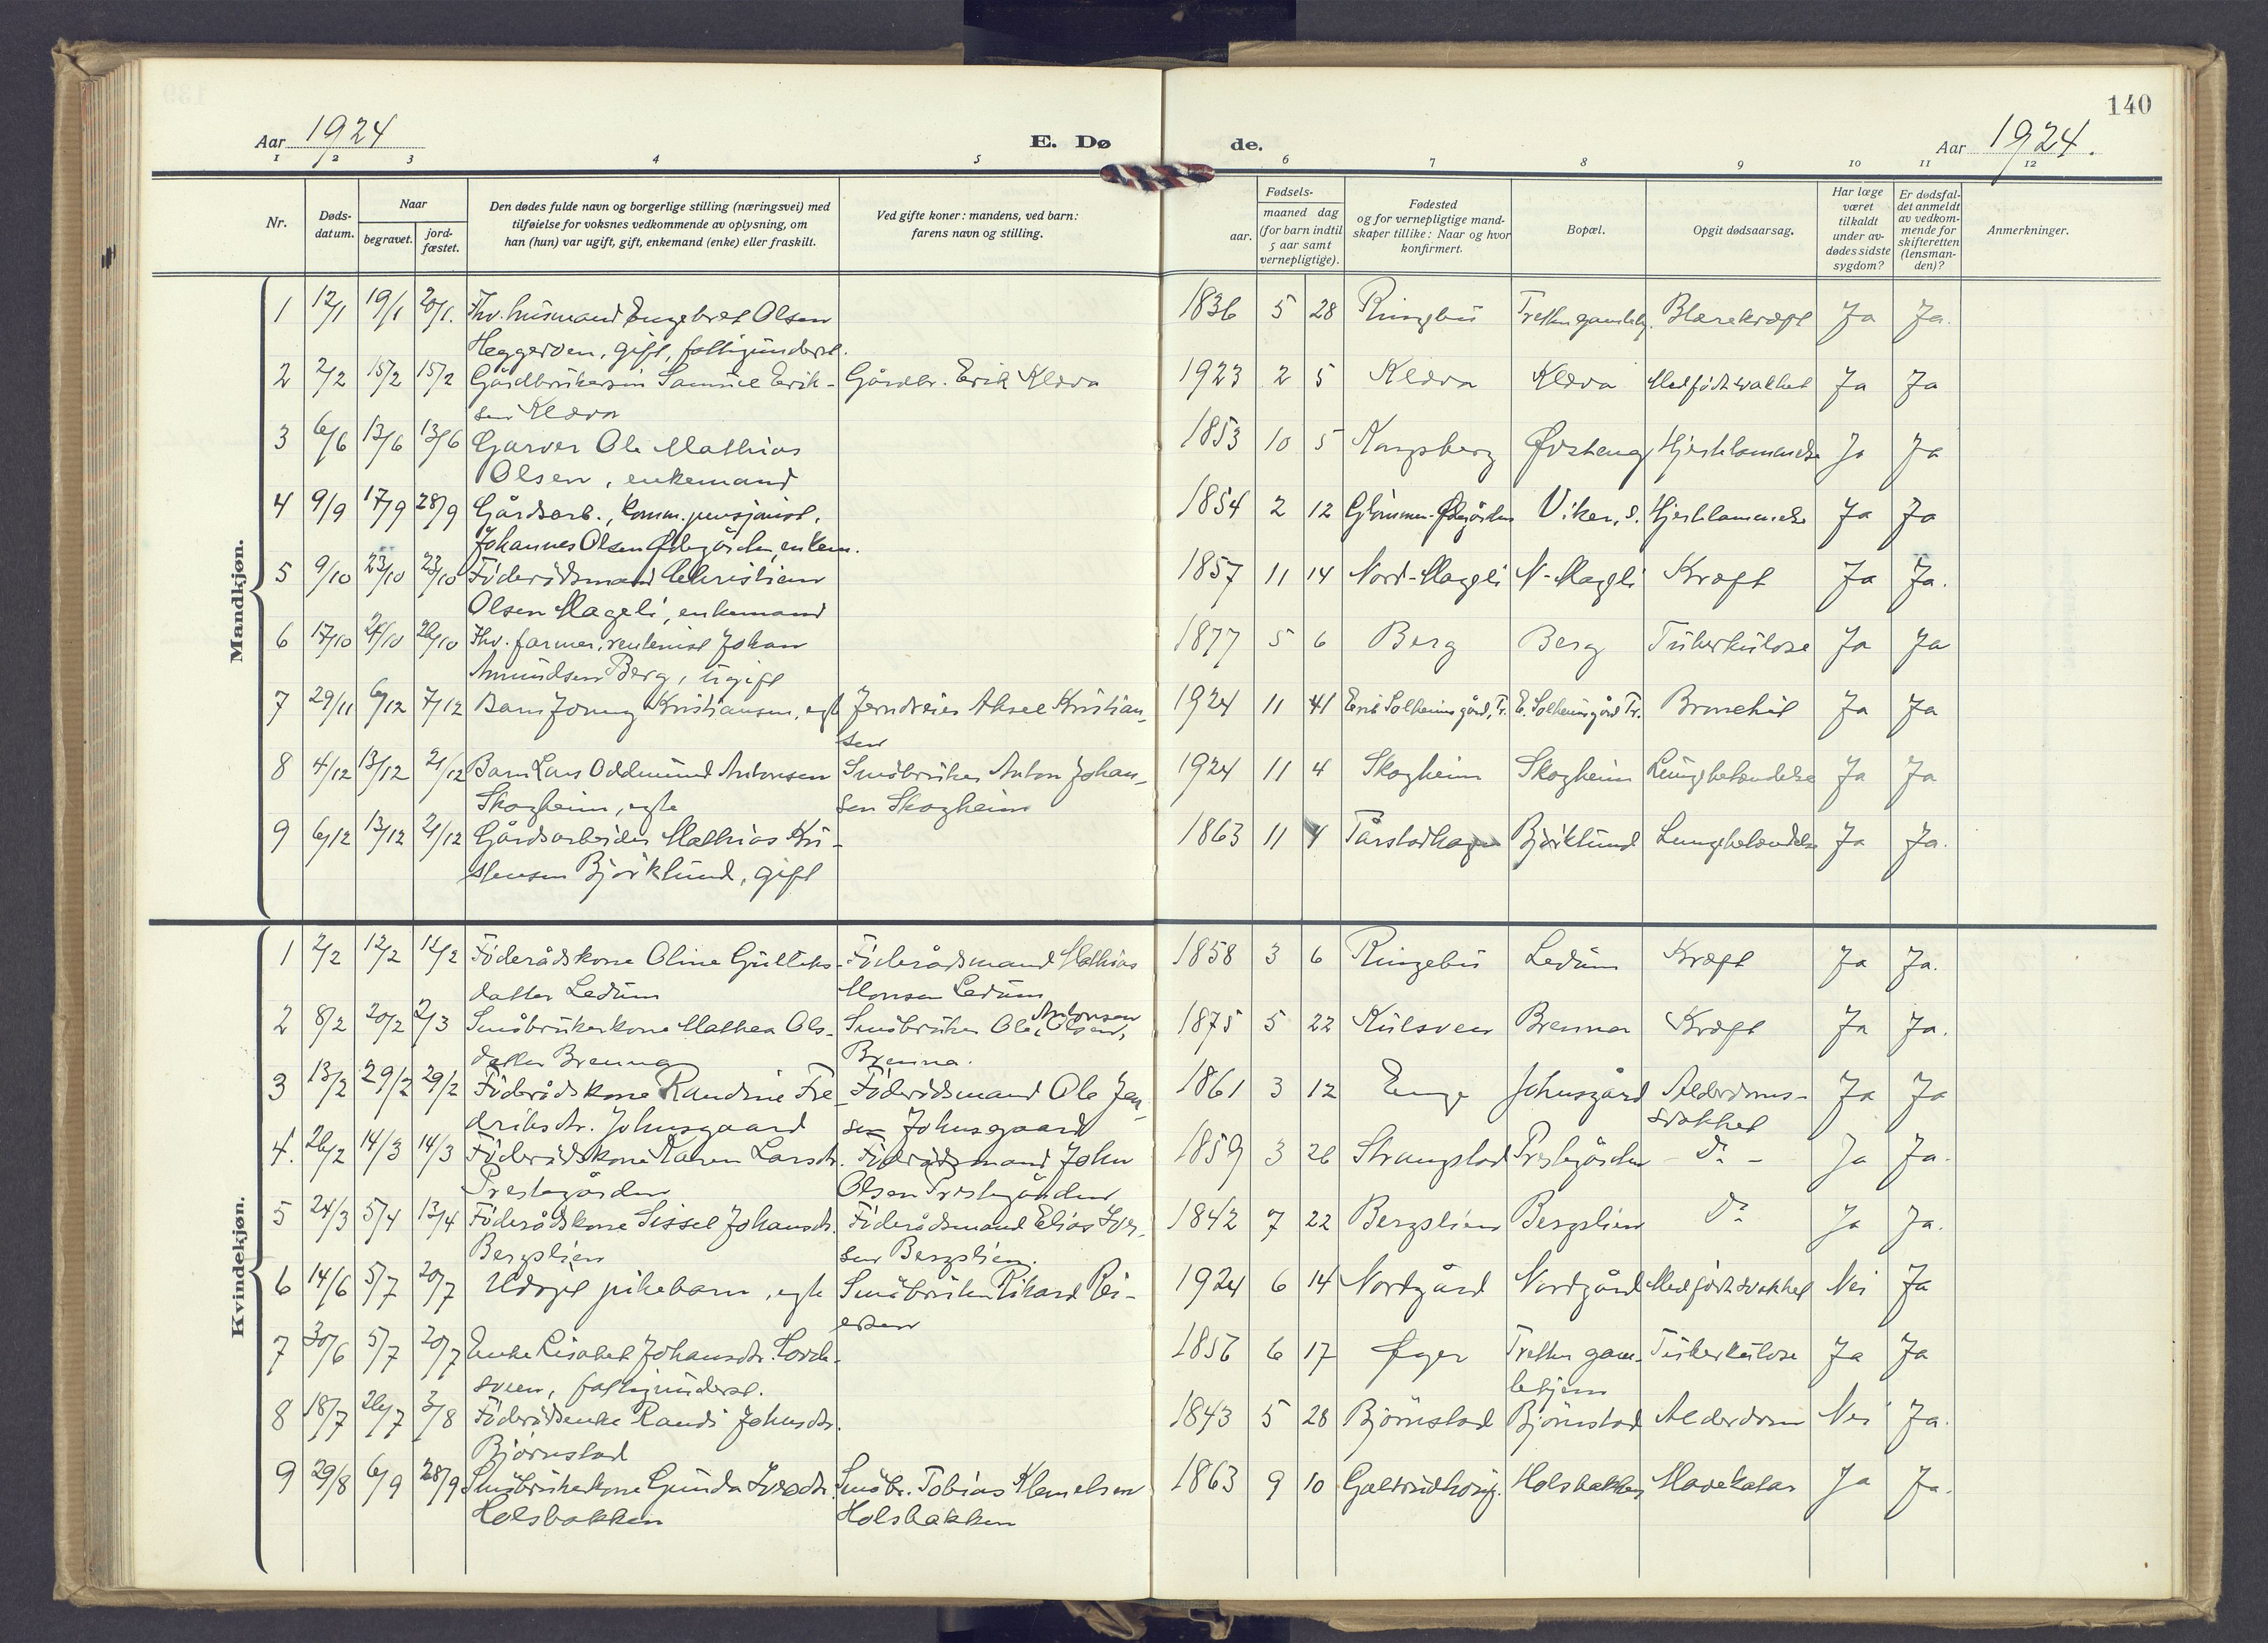 140
Aar 1924
E. Dø
de.
Aar 1924.
1 2 3 4 5 6 7 8 9 10 11 12
Nr.
Døds-
datum.
Naar
begravet.
jord-
fæstet.
Den dødes fulde navn og borgerlige stilling (næringsvei) med
tilføielse for voksnes vedkommende av oplysning, om
han (hun) var ugift, gift, enkemand (enke) eller fraskilt.
Ved gifte koner: mandens, ved barn:
farens navn og stilling.
Fødsels-
aar.
maaned dag
(for barn indtil
5 aar samt
vernepligtige).
Fødested
og for vernepligtige mand-
skaper tillike: Naar og hvor
konfirmert.
Bopæl.
Opgit dødsaarsag.
Har læge
været
tilkaldt
under av-
dødes sidste
sygdom?
Er dødsfal-
det anmeldt
av vedkom-
mende for
skifteretten
(lensman-
den)?
Anmerkninger.
Mandkjøn.
1 12/1 19/1 20/1. Fhv. husmand Engebret Olsen 1836 5 28 Ringebu Blærekræft Ja Ja.
Heggerden, gift, fattigunderst.
2 2/2 15/2 15/2 Gårdbrukersøn Samuel Erik- Gårdbr. Erik Kleva 1923 2 5 Kleva Kleva Medfødt svakhet Ja Ja
sen Kleva
3 6/6 13/6 13/6 Garver Ole Mathias 1853 10 5 Kongsberg Hjertelammelse Ja Ja
Olsen, enkemand
4 9/9 17/9 28/9 Gårdsarb., komm. pensjonist, 1854 2 12 Viken, s. Hjertelammelse Ja Ja
Johannes Olsen Ødegården, enkem.
5 9/10 23/10 23/10 Føderådsmand Christian 1857 11 14 Nord-Mageli N-Mageli Kræft Ja Ja.
Olsen Mageli, enkemand
6 17/10 /10 26/10 Fhv. farmer, rentenist Johan 1877 5 6 Berg Berg Tuberkulose Ja Ja
Amundsen Berg, ugift
7 29/11 6/12 7/12 Barn Kristiansen, egte Aksel Kristian- 1924 11 Erik Solheims gård, Tr. E. Solheims gård Tr. Bronchit Ja Ja
sen
8 4/12 13/12 21/12 Barn Lars Oddmund Antonsen Småbruker Anton Johan- 1924 11 4 Skogheim Skogheim Lungebetændelse Ja Ja
Skogheim, egte sen Skogheim
9 6/12 13/12 21/12 Gårdsarbeider Mathias Kri- 1863 11 4 Tårstadhagen Bjørklund Lungebetændelse Ja Ja.
stensen Bjørklund, gift
Kvindekjøn.
1 2/2 12/2 12/2 Føderådskone Oline Gulleks- Føderådsmand Mathias 1858 3 6 Ringebu Ledum Kræft Ja Ja.
datter Ledum Monsen Ledum
2 8/2 20/2 2/3 Småbrukerkone Mathea Ols- Småbruker Ole Antonsen Olsen, 1875 5 22 Kulsveen Brenna Kræft Ja Ja.
datter Brenna Brenna.
3 13/2 29/2 29/2 Føderådskone Randine Fre- Føderådsmand Ole Jen- 1861 3 12 Enge Johnsgård Alderdoms- Ja Ja
driksdtr. Johnsgaard sen Johnsgaard svakhet
4. 26/2 14/3 14/3 Føderådskone Karen Larsdtr. Føderådsmand John 1859 3 26 Strangstad Prestegården - Do - Ja Ja.
Prestegården Olsen Prestegården
5 24/3 5/4 13/4 Føderådskone Sissel Johansdtr. Føderådsmand Elias Iver- 1842 7 22 Bergslien Bergslien Do Ja Ja.
Bergslien sen Bergslien.
6 14/6 5/7 20/7 Udøpt pikebarn, egte Småbruker Rikard Rei- 1924 6 14 Nordgård Nordgård Medfødt svakhet Nei Ja
ersen
7 30/6 5/7 20/7 Enke Lisabet Johansdtr. 1856 6 17 Øyer Tretten gam- Tuberkulose Ja Ja
sveen, fattigunderst. lehjem
8 18/7 26/7 3/8 Føderådsenke Randi Johnsdtr. 1843 5 28 Bjørnstad Bjørnstad Alderdom Nei Ja.
Bjørnstad
9 29/8 6/9 28/9 Småbrukerkone Gunda Iversdtr. Småbr. Tobias Klemetsen 1863 9 10 Holsbakken Mavekatar Ja Ja.
Holsbakken Holsbakken